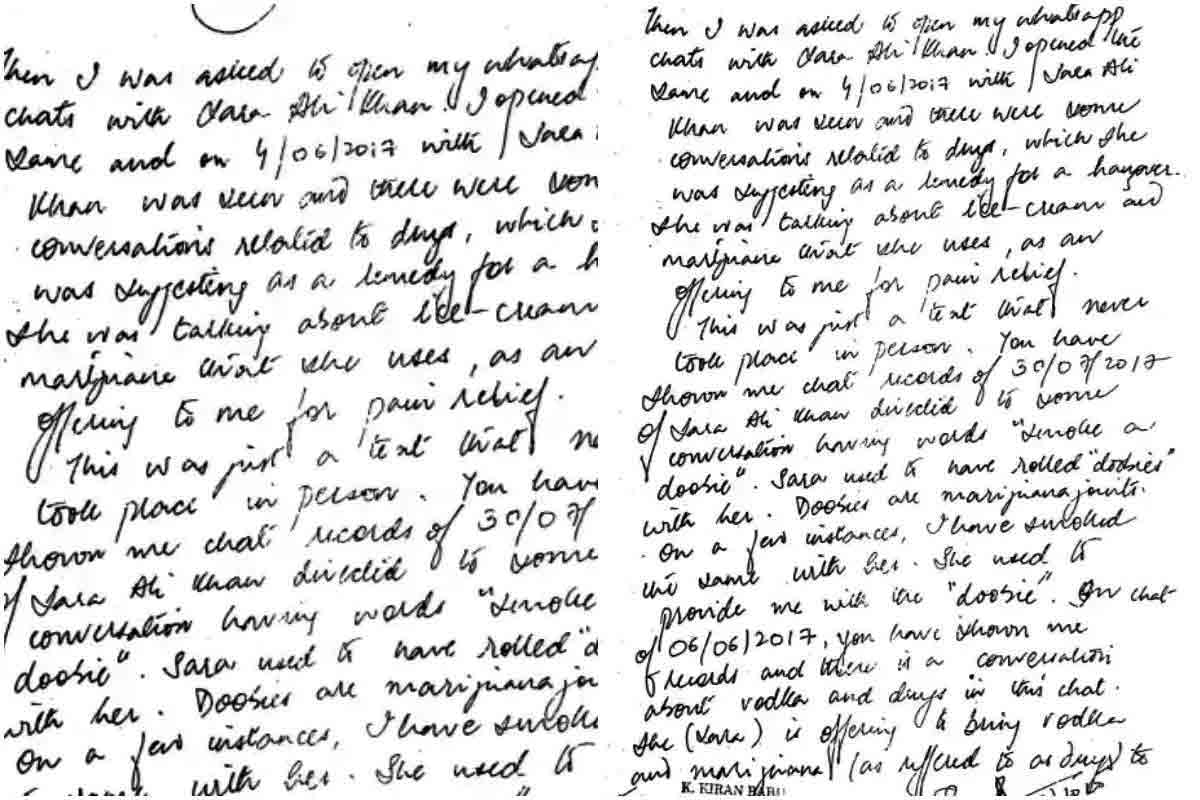 Then I was asked to open my whatsap
chats with Sara Ali Khan. I opened
same and on 4/06/2017 with Sara
Khan was seen and there were som
conversations related to drugs, which
was suggesting as a remedy for a h
She was talking about ice-cream
marijuana that she uses, as an
offering to me for pain relief.
This was just a text that ne
took place in person. You have
shown me chat records of 30/07/
of Sara Ali Khan directed to some
conversation having words "smoke
doobie". Sara used to have rolled "d
with her. Doobies are marijuana joi
On a few instances, I have smoke
with her. She used to
Then I was asked to open my whatsapp
chats with Sara Ali Khan. I opened the
same and on 4/06/2017 with Sara Ali
Khan was seen and there were some
conversations related to drugs, which she
was suggesting as a remedy for a hangover.
She was talking about ice-cream and
marijuana that she uses, as an
offering to me for pain relief.
This was just a text that never
took place in person. You have
shown me chat records of 30/07/2017
of Sara Ali Khan directed to some
conversation having words "smoke a
doobie". Sara used to have rolled "doobies"
with her. Doobies are marijuana joints.
On a few instances, I have smoked
the same with her. She used to
provide me with the "doobie". On chat
of 06/06/2017, you have shown me
records and there is a conversation
about vodka and drugs in this chat.
She (Sara) is offering to bring vodka
and marijuana (as reffered to as drugs) to
K. KIRAN BABU